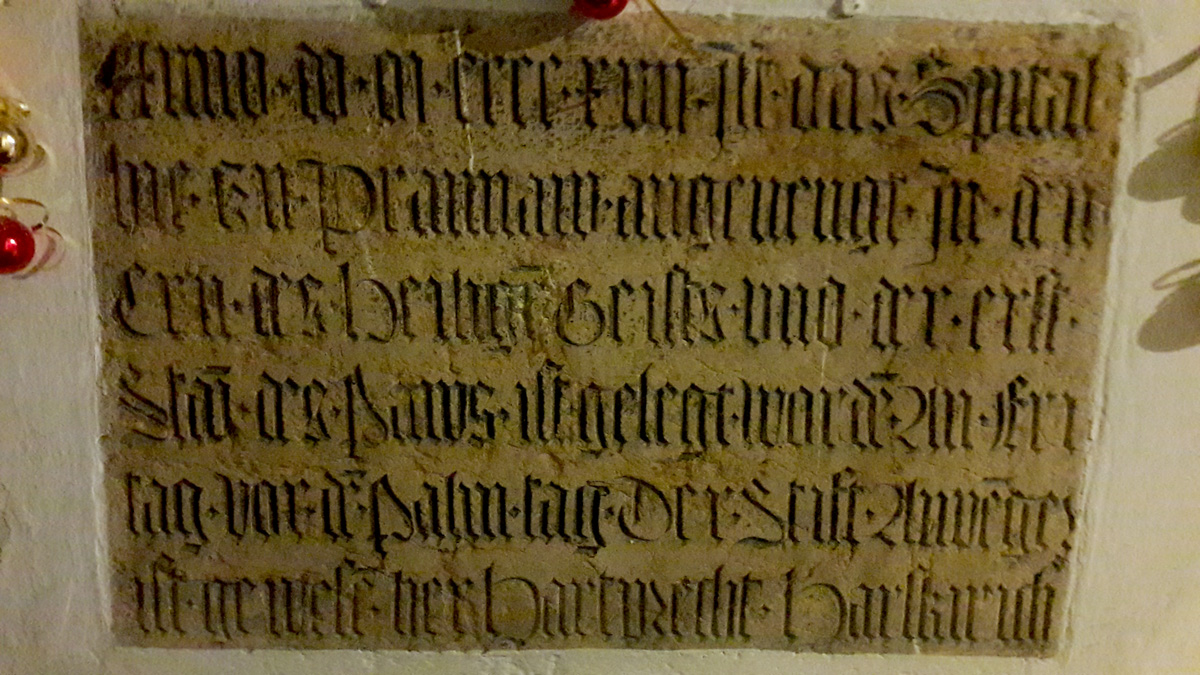 Anno · dn̄ · m · cccc · xvii · ist · das · Spital
hie · zu Prawnaw · angeuengt · In · d'n
Ern · d's Heilign̄ Geists · vnd · d'r · erst ·
Stain̄ d's · Paws · ist gelegt · wordn̄ An · Eri
tag · vor · dm̄ Palm · tag Der Stift Anvēger
ist · gewesn̄ · her Hartprecht · Harskirich